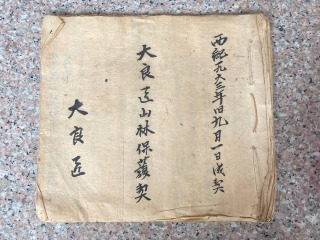 西紀一九六三年旧九月一日成契
大良匠山林保護契
大良匠